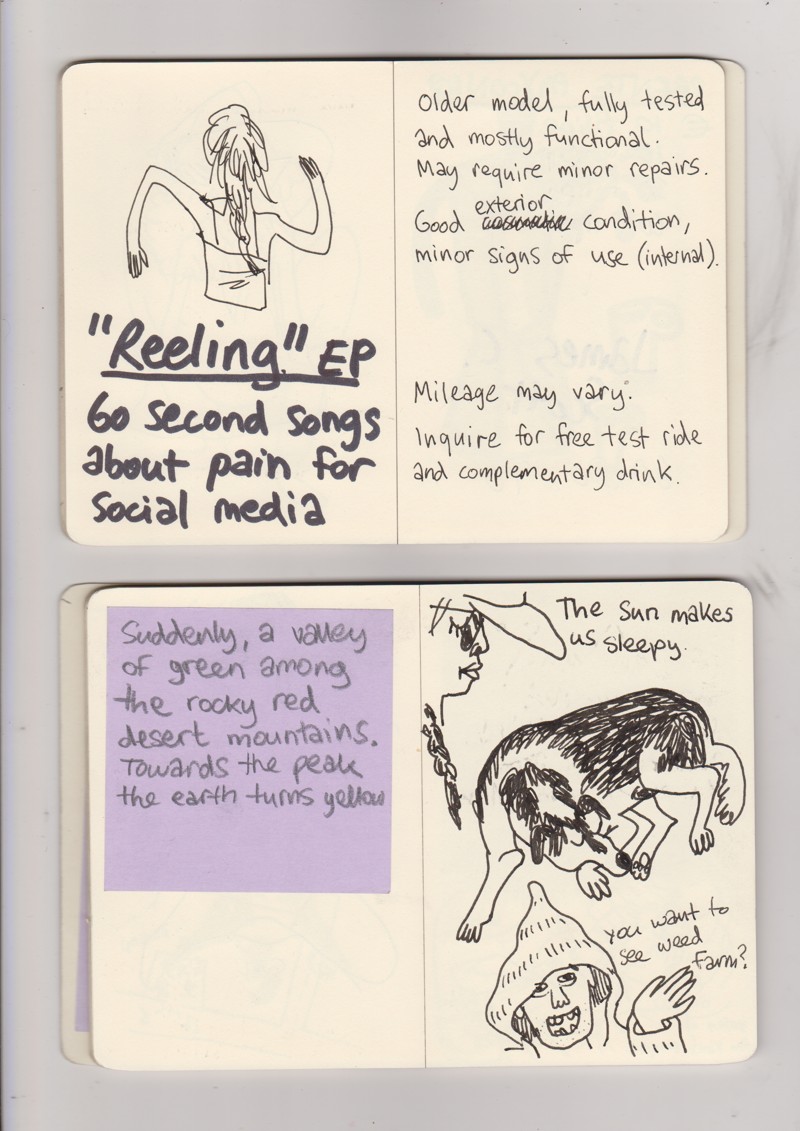 "Reeling" EP
60 second songs
about pain for
social media
Older model, fully tested
and mostly functional.
May require minor repairs.
exterior
Good condition,
minor signs of use (internal).
Mileage may vary.
Inquire for free test ride
and complementary drink.
Suddenly, a valley
of green among
the rocky red
desert mountains.
Towards the peak
the earth turns yellow
The Sun makes
us sleepy.
you want to
see weed
farm?